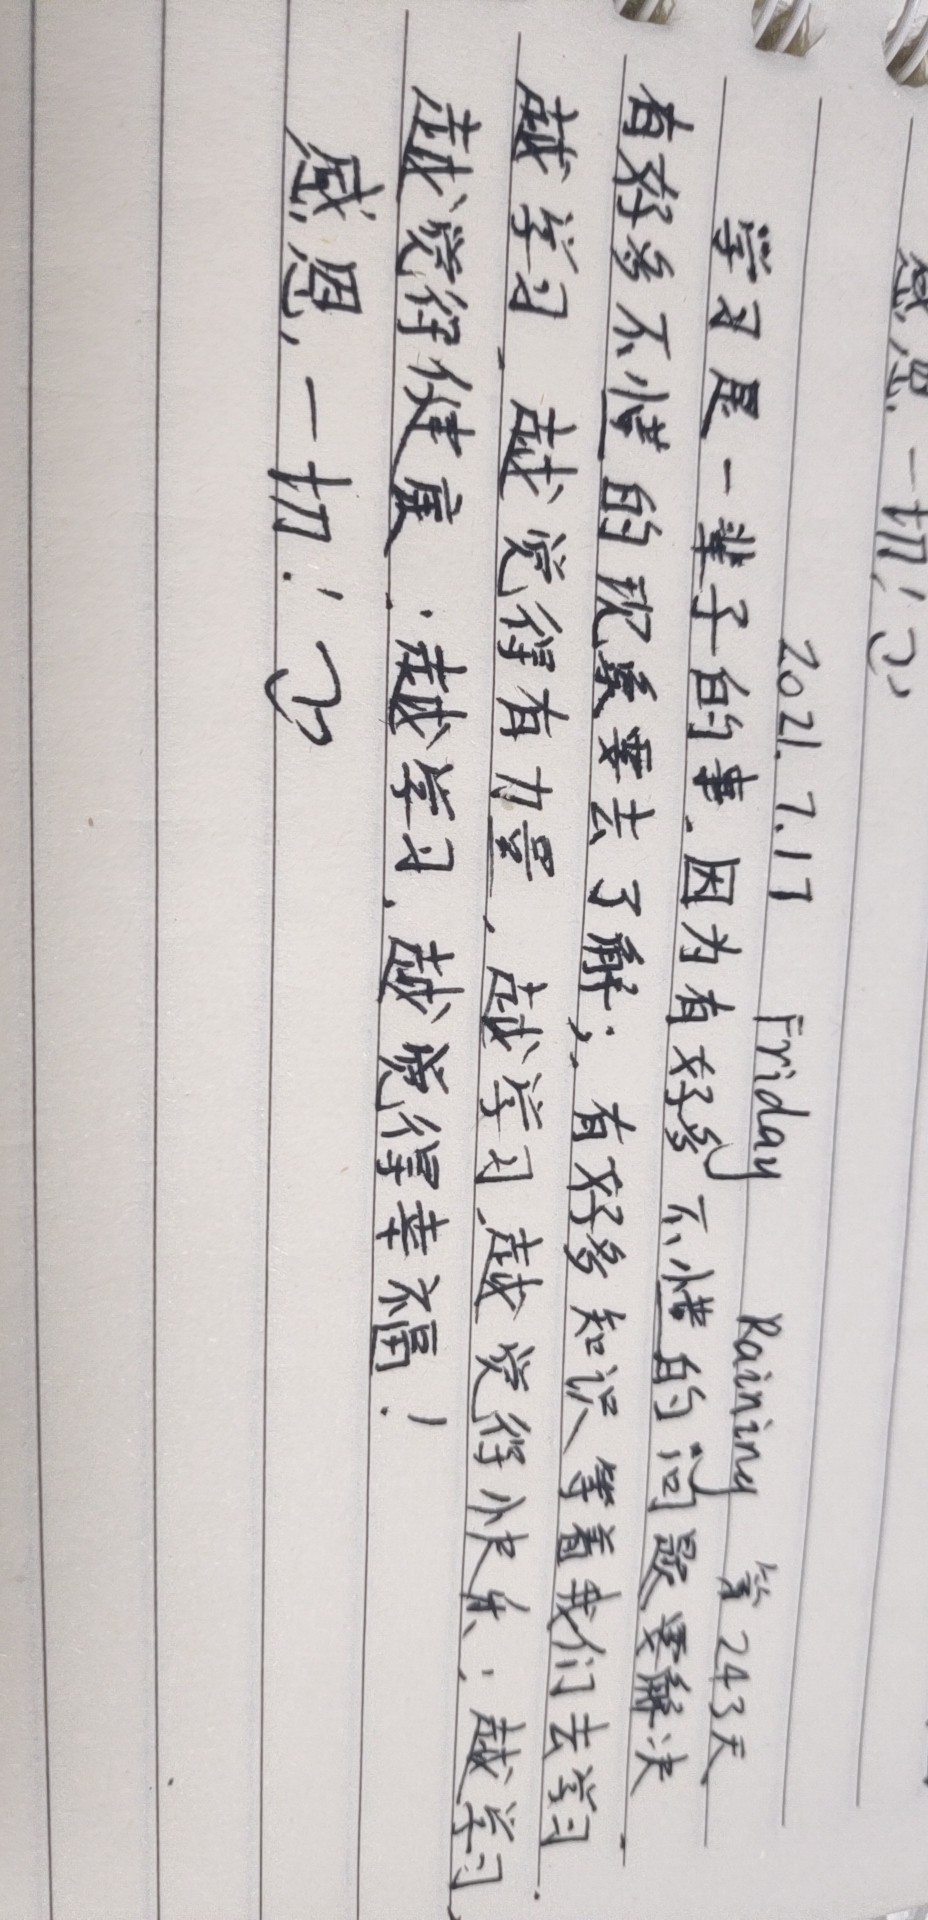 感恩一切!
2021.7.17 Friday Raining 第243天
学习是一辈子的事.因为有好多不懂的问题要解决
有好多不懂的现象要去了解;有好多知识等着我们去学习.
越学习.越觉得有力量.越学习.越觉得快乐;越学习.
越觉得健康.越学习.越觉得幸福!
感恩,一切!